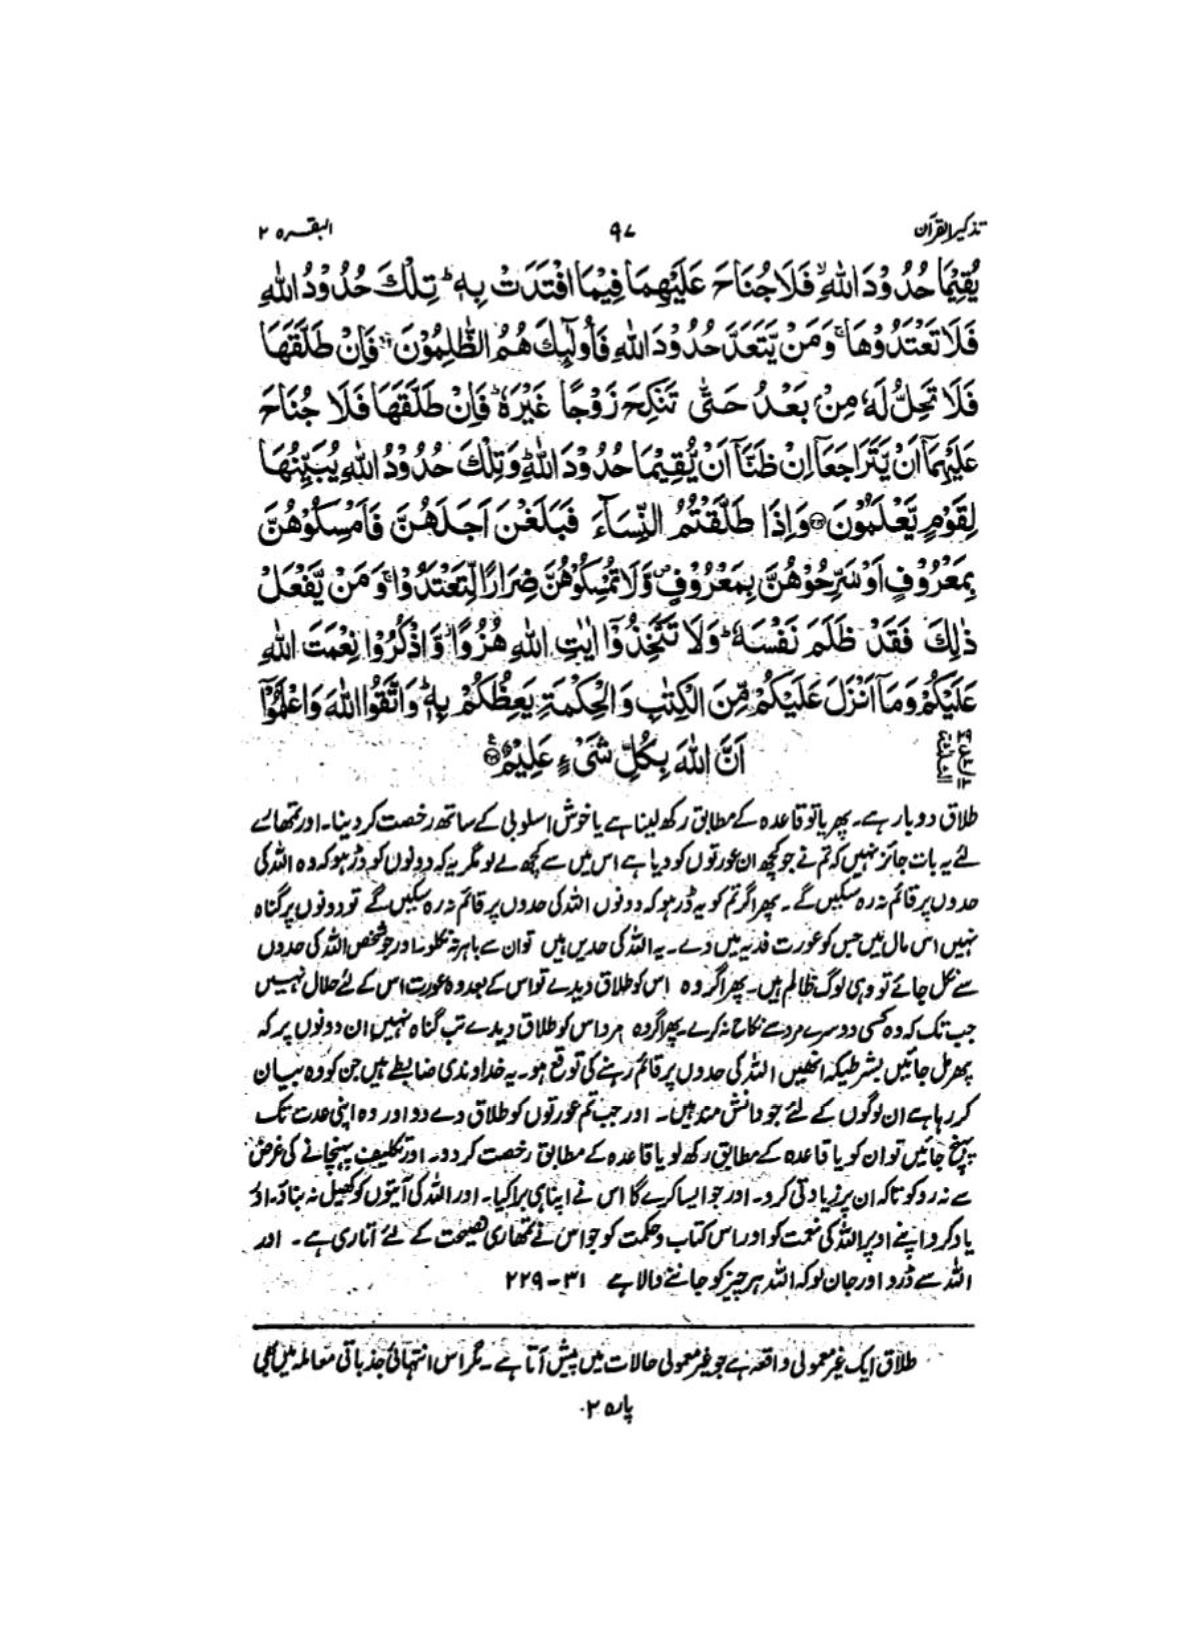 تذکیر القرآن ۹۷ البقرہ ۲
يُقِيْمَا حُدُوْدَ اللّٰهِ ۙ فَلَا جُنَاحَ عَلَيْهِمَا فِيْمَا افْتَدَتْ بِهٖ ؕ تِلْكَ حُدُوْدُ اللّٰهِ
فَلَا تَعْتَدُوْهَا ۚ وَمَنْ يَّتَعَدَّ حُدُوْدَ اللّٰهِ فَاُولٰٓئِكَ هُمُ الظّٰلِمُوْنَ ۝ فَاِنْ طَلَّقَهَا
فَلَا تَحِلُّ لَهٗ مِنْۢ بَعْدُ حَتّٰى تَنْكِحَ زَوْجًا غَيْرَهٗ ؕ فَاِنْ طَلَّقَهَا فَلَا جُنَاحَ
عَلَيْهِمَاۤ اَنْ يَّتَرَاجَعَاۤ اِنْ ظَنَّاۤ اَنْ يُّقِيْمَا حُدُوْدَ اللّٰهِ ؕ وَتِلْكَ حُدُوْدُ اللّٰهِ يُبَيِّنُهَا
لِقَوْمٍ يَّعْلَمُوْنَ ۝ وَاِذَا طَلَّقْتُمُ النِّسَآءَ فَبَلَغْنَ اَجَلَهُنَّ فَاَمْسِكُوْهُنَّ
بِمَعْرُوْفٍ اَوْ سَرِّحُوْهُنَّ بِمَعْرُوْفٍ ۪ وَّلَا تُمْسِكُوْهُنَّ ضِرَارًا لِّتَعْتَدُوْا ۚ وَمَنْ يَّفْعَلْ
ذٰلِكَ فَقَدْ ظَلَمَ نَفْسَهٗ ؕ وَلَا تَتَّخِذُوْۤا اٰيٰتِ اللّٰهِ هُزُوًا ؗ وَّاذْكُرُوْا نِعْمَتَ اللّٰهِ
عَلَيْكُمْ وَمَاۤ اَنْزَلَ عَلَيْكُمْ مِّنَ الْكِتٰبِ وَالْحِكْمَةِ يَعِظُكُمْ بِهٖ ؕ وَاتَّقُوا اللّٰهَ وَاعْلَمُوْۤا
اَنَّ اللّٰهَ بِكُلِّ شَيْءٍ عَلِيْمٌ ۝
طلاق دو بار ہے۔ پھر یا تو قاعدہ کے مطابق رکھ لینا ہے یا خوش اسلوبی کے ساتھ رخصت کر دینا۔ اور تمھارے
لئے یہ بات جائز نہیں کہ تم نے جو کچھ ان عورتوں کو دیا ہے اس میں سے کچھ لے لو مگر یہ کہ دونوں کو ڈر ہو کہ وہ اللہ کی
حدوں پر قائم نہ رہ سکیں گے۔ پھر اگر تم کو یہ ڈر ہو کہ دونوں اللہ کی حدوں پر قائم نہ رہ سکیں گے تو دونوں پر گناہ
نہیں اس مال میں جس کو عورت فدیہ میں دے۔ یہ اللہ کی حدیں ہیں تو ان سے باہر نہ نکلو۔ اور جو شخص اللہ کی حدوں
سے نکل جائے تو وہی لوگ ظالم ہیں۔ پھر اگر وہ اس کو طلاق دیدے تو اس کے بعد وہ عورت اس کے لئے حلال نہیں
جب تک کہ وہ کسی دوسرے مرد سے نکاح نہ کرے۔ پھر اگر وہ مرد اس کو طلاق دیدے تب گناہ نہیں ان دونوں پر کہ
پھر مل جائیں بشرطیکہ انھیں اللہ کی حدوں پر قائم رہنے کی توقع ہو۔ یہ خداوندی ضابطے ہیں جن کو وہ بیان
کر رہا ہے ان لوگوں کے لئے جو دانش مند ہیں۔ اور جب تم عورتوں کو طلاق دے دو اور وہ اپنی عدت تک
پہنچ جائیں تو ان کو یا قاعدہ کے مطابق رکھ لو یا قاعدہ کے مطابق رخصت کر دو۔ اور تکلیف پہنچانے کی غرض
سے نہ روکو تاکہ ان پر زیادتی کرو۔ اور جو ایسا کرے گا اس نے اپنا ہی برا کیا۔ اور اللہ کی آیتوں کو کھیل نہ بناؤ۔ اور
یاد کرو اپنے اوپر اللہ کی نعمت کو اور اس کتاب و حکمت کو جو اس نے تمھاری نصیحت کے لئے اتاری ہے۔ اور
اللہ سے ڈرو اور جان لو کہ اللہ ہر چیز کو جاننے والا ہے ۳۱-۲۲۹
طلاق ایک غیر معمولی واقعہ ہے جو غیر معمولی حالات میں پیش آتا ہے۔ مگر اس انتہائی جذباتی معاملہ میں بھی
پارہ ۲